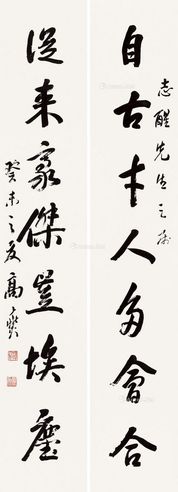 志醒先生之属
自古才人多會合
從来豪傑豈埃塵
癸未之夏高燮